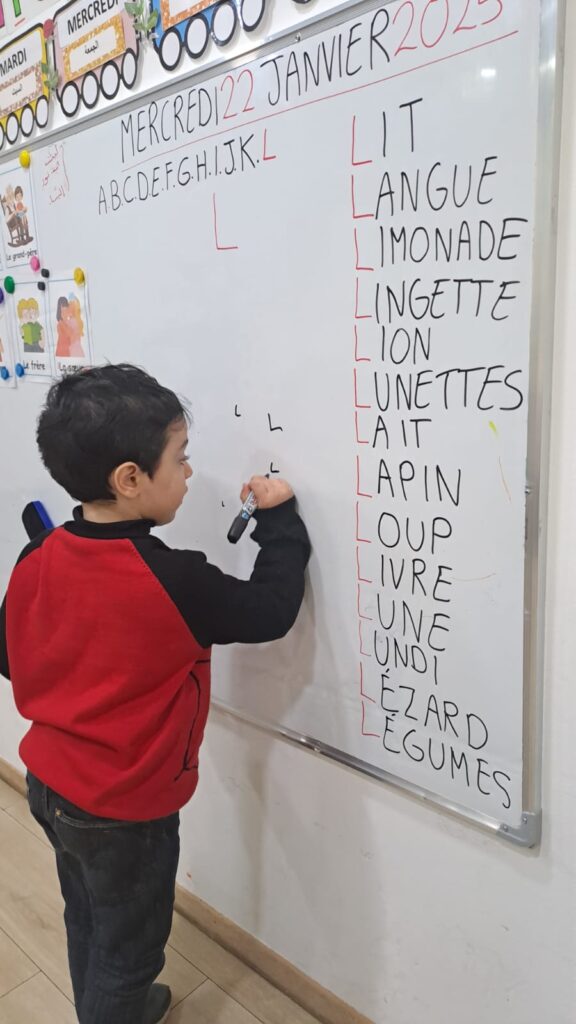 MARDI
MERCREDI
الجمعة
MERCREDI 22 JANVIER 2025
A.B.C.D.E.F.G.H.I.J.K.L
L
LIT
LANGUE
LIMONADE
LINGETTE
LION
LUNETTES
LAIT
LAPIN
LOUP
LIVRE
LUNE
LUNDI
LÉZARD
LÉGUMES
Le grand-père
Le frère
La sœur
L
L
L